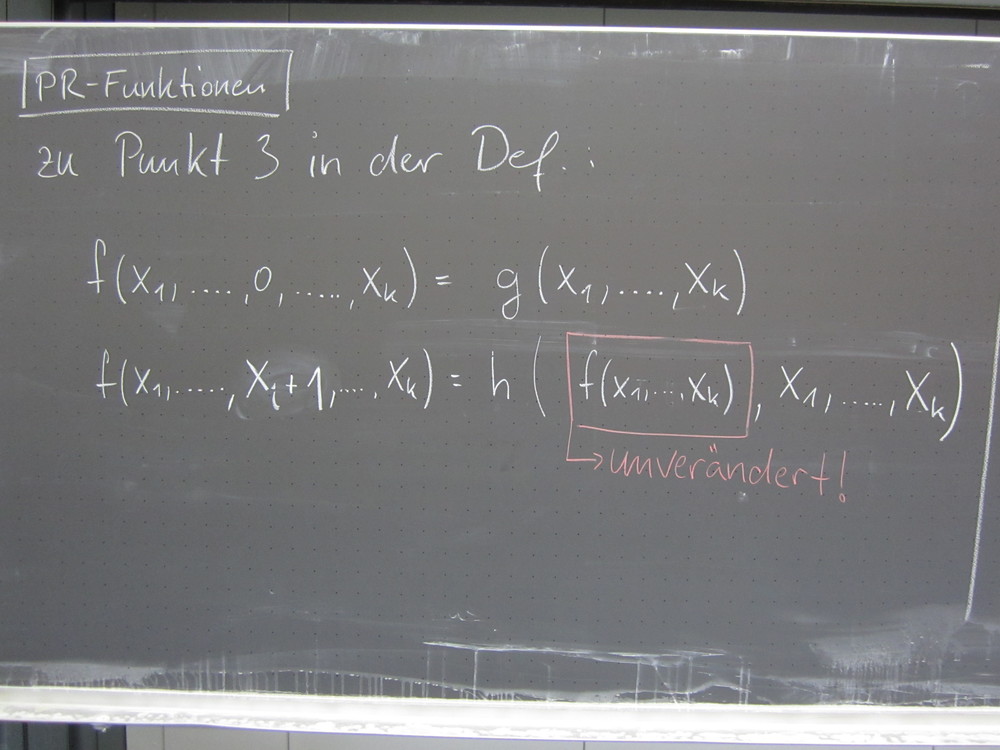 PR-Funktionen
zu Punkt 3 in der Def.:
f(x₁, ...., 0, ....., xₖ) = g(x₁, ...., xₖ)
f(x₁, ....., xᵢ+1, ...., xₖ) = h(f(x₁, ..., xₖ), x₁, ....., xₖ)
→ unverändert!